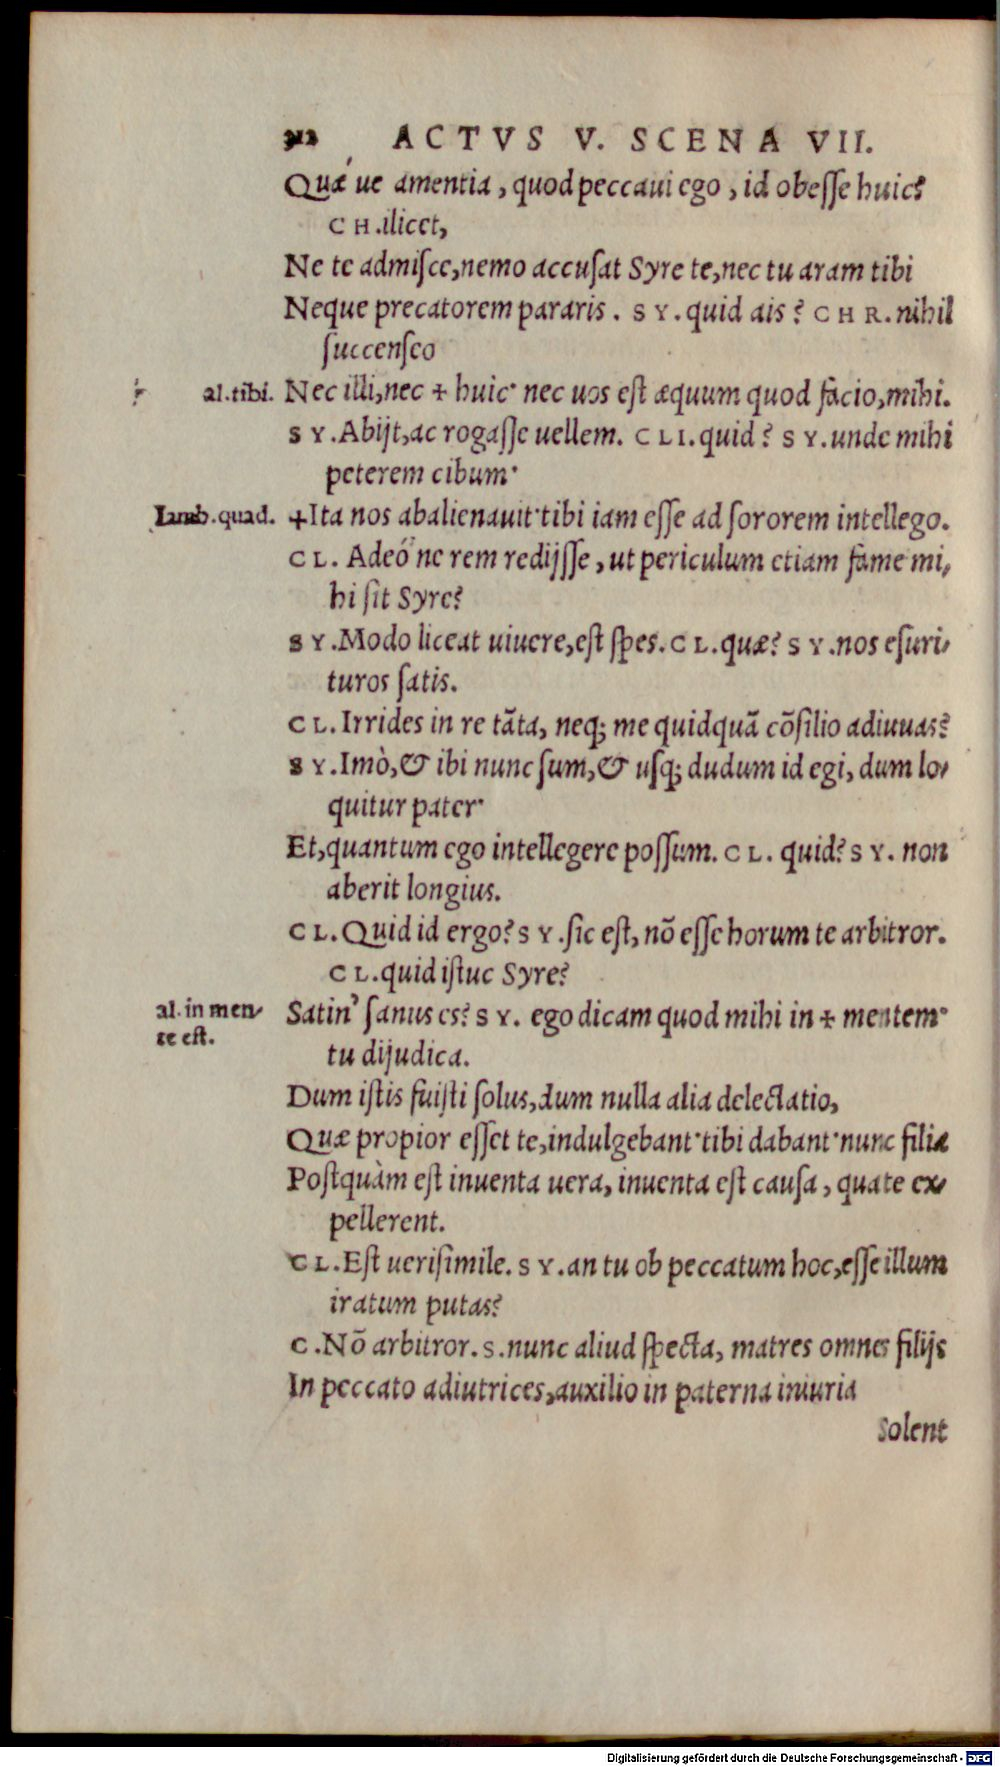 212 ACTVS V. SCENA VII.
Quæ´ ue amentia, quod peccaui ego, id obesse huic?
CH. ilicet,
Ne te admisce, nemo accusat Syre te, nec tu aram tibi
Neque precatorem pararis. SY. quid ais? CHR. nihil
succenseo
al. tibi. Nec illi, nec + huic· nec uos est æquum quod facio, mihi.
SY. Abijt, ac rogasse uellem. CLI. quid? SY. unde mihi
peterem cibum·
Iamb. quad. +Ita nos abalienauit· tibi iam esse ad sororem intellego.
CL. Adeó ne rem redijsse, ut periculum etiam fame mi-
hi sit Syre?
SY. Modo liceat uiuere, est spes. CL. quæ? SY. nos esuri-
turos satis.
CL. Irrides in re tãta, neq; me quidquã cõsilio adiuuas?
SY. Imò, & ibi nunc sum, & usq; dudum id egi, dum lo-
quitur pater·
Et, quantum ego intellegere possum. CL. quid? SY. non
aberit longius.
CL. Quid id ergo? SY. sic est, nõ esse horum te arbitror.
CL. quid istuc Syre?
al. in men-
te est.
Satin' sanus es? SY. ego dicam quod mihi in + mentem·
tu dijudica.
Dum istis fuisti solus, dum nulla alia delectatio,
Quæ propior esset te, indulgebant· tibi dabant· nunc filia
Postquàm est inuenta uera, inuenta est causa, qua te ex-
pellerent.
CL. Est uerisimile. SY. an tu ob peccatum hoc, esse illum
iratum putas?
C. Nõ arbitror. S. nunc aliud specta, matres omnes filijs
In peccato adiutrices, auxilio in paterna iniuria
Solent
Digitalisierung gefördert durch die Deutsche Forschungsgemeinschaft · DFG